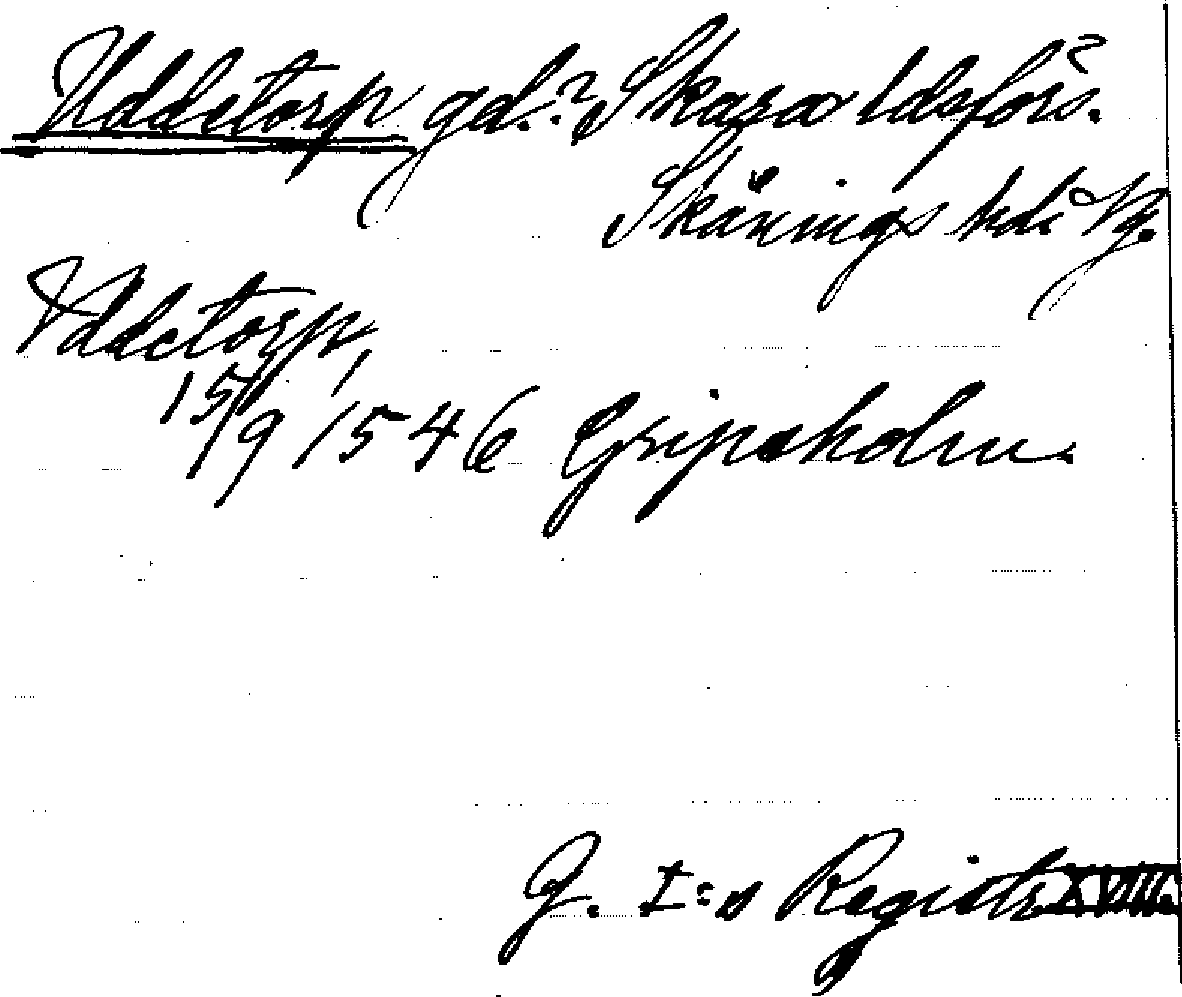 Uddetorp gd.? Skara ldsförs.
Skånings hd. Vg.
Vddetorp,
15/9 1546 Gripsholm.
G. I:s Registr. XVIII.